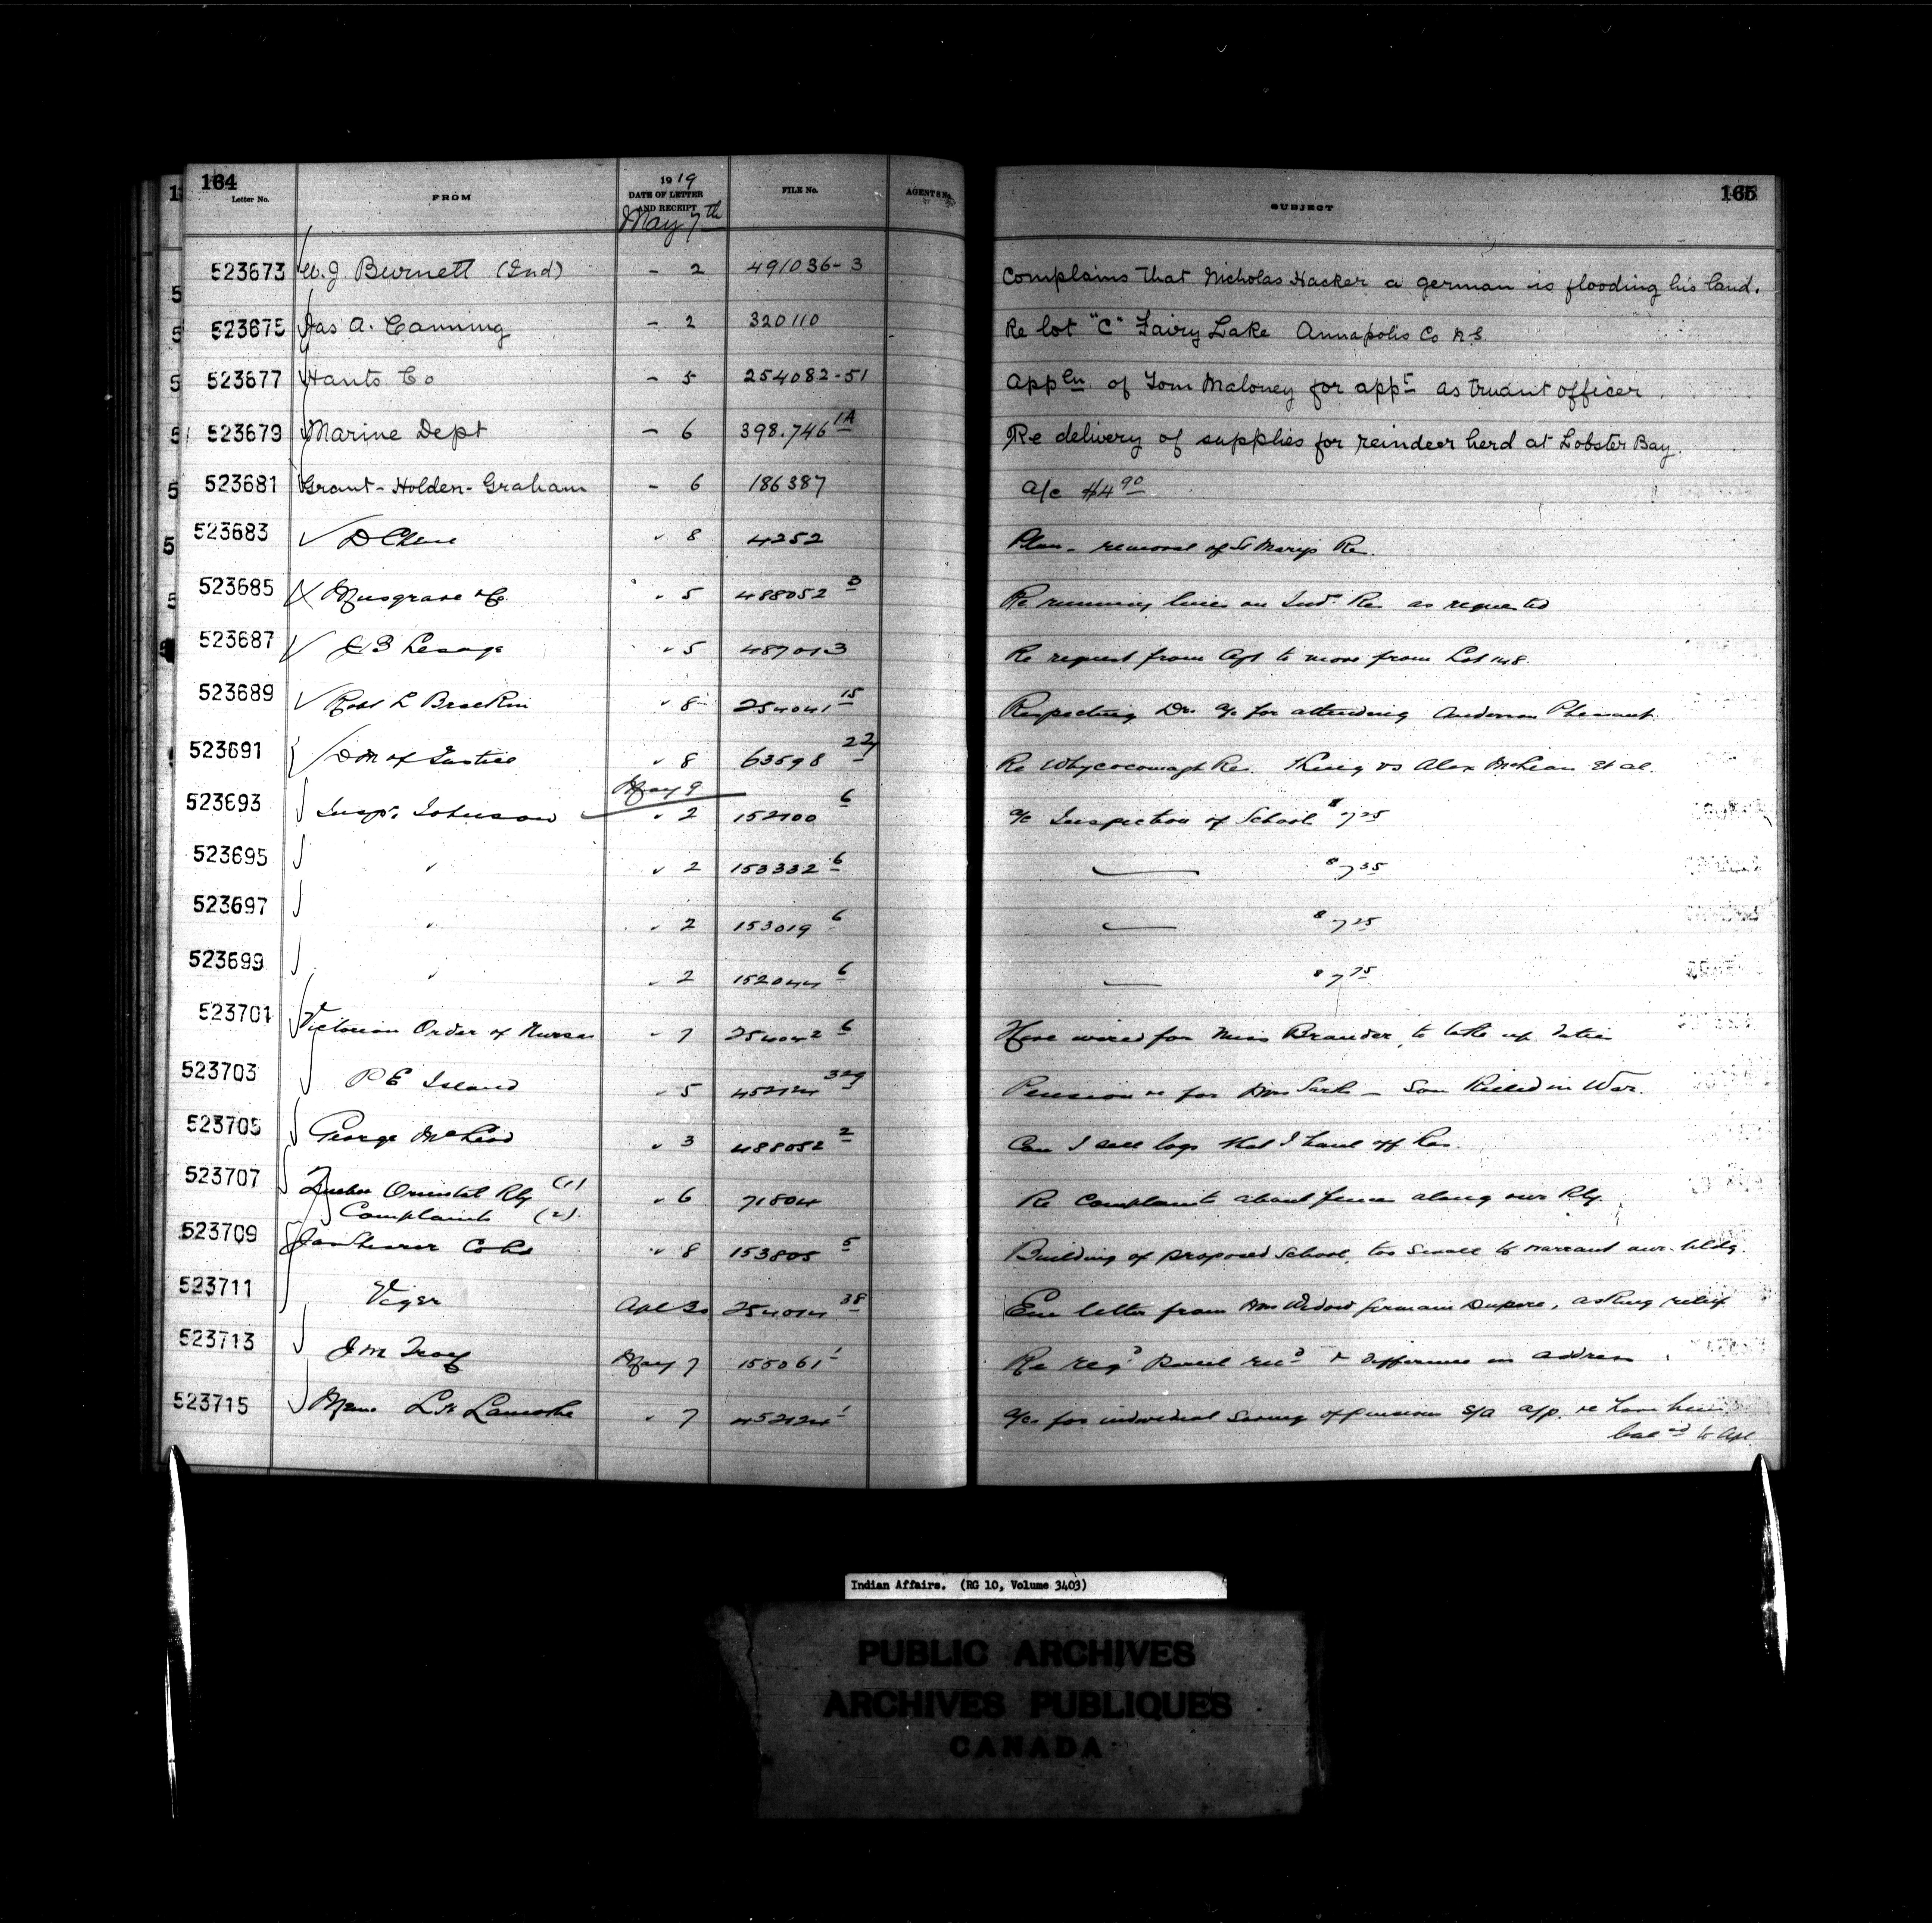 164
Letter No. FROM 1919 DATE OF LETTER AND RECEIPT FILE No. AGENTS No. SUBJECT 165
May 7th
523673 W. J Burnett (Ind) - 2 491036-3 Complains that Nicholas Hacker a german is flooding his land.
523675 Jas A. Canning - 2 320110 Re lot "C" Fairy Lake Annapolis Co N.S.
523677 Hants Co - 5 254082-51 Appln of Tom Maloney for appt as truant officer
523679 Marine Dept - 6 398.746 1A Re delivery of supplies for reindeer herd at Lobster Bay.
523681 Grant-Holden-Graham - 6 186387 a/c $4 90
523683 " 8 4252 Plan - removal of St Marys Re
523685 Musgrave & Co " 5 488052 3 Re running lines on Ind. Re as requested
523687 J B Lesage " 5 487013 Re request from Agt to move from Lot 148.
523689 Robt L " 8 254041 15 Respecting Dr a/c for attending Anderson
523691 D M of Justice " 8 63598 22 Re Whycocomagh Re. King vs Alex McLean et al.
May 9
523693 Insp. Johnson " 2 152100 6 a/c Inspection of School $7 25
523695 " " 2 153332 6 — $7 35
523697 " " 2 153019 6 — $7 25
523699 " " 2 152044 6 — $7 75
523701 Victorian Order of Nurses " 7 254042 6 Have wired for Miss Brander, to take up duties
523703 P E Island " 5 452124 329 Pension re for Mrs Sark - Son Killed in War.
523705 George McLeod " 3 488052 2 Can I sell logs that I haul off Res
523707 Quebec Oriental Rly (1) " 6 71804 Re Complaints about fence along our Rly.
Complaints (2).
523709 " 8 153805 5 Building of proposed School, too small to warrant our bldg
523711 Viger Apl 30 254014 38 Enc letter from Mrs Widow Germain Dupere, asking relief
523713 J M Troy May 7 155061 1 Re reqd Parcel recd & difference in address
523715 Memo " 7 452124 1 a/c for individual
to Apl
Indian Affairs. (RG 10, Volume 3403)
PUBLIC ARCHIVES
ARCHIVES PUBLIQUES
CANADA